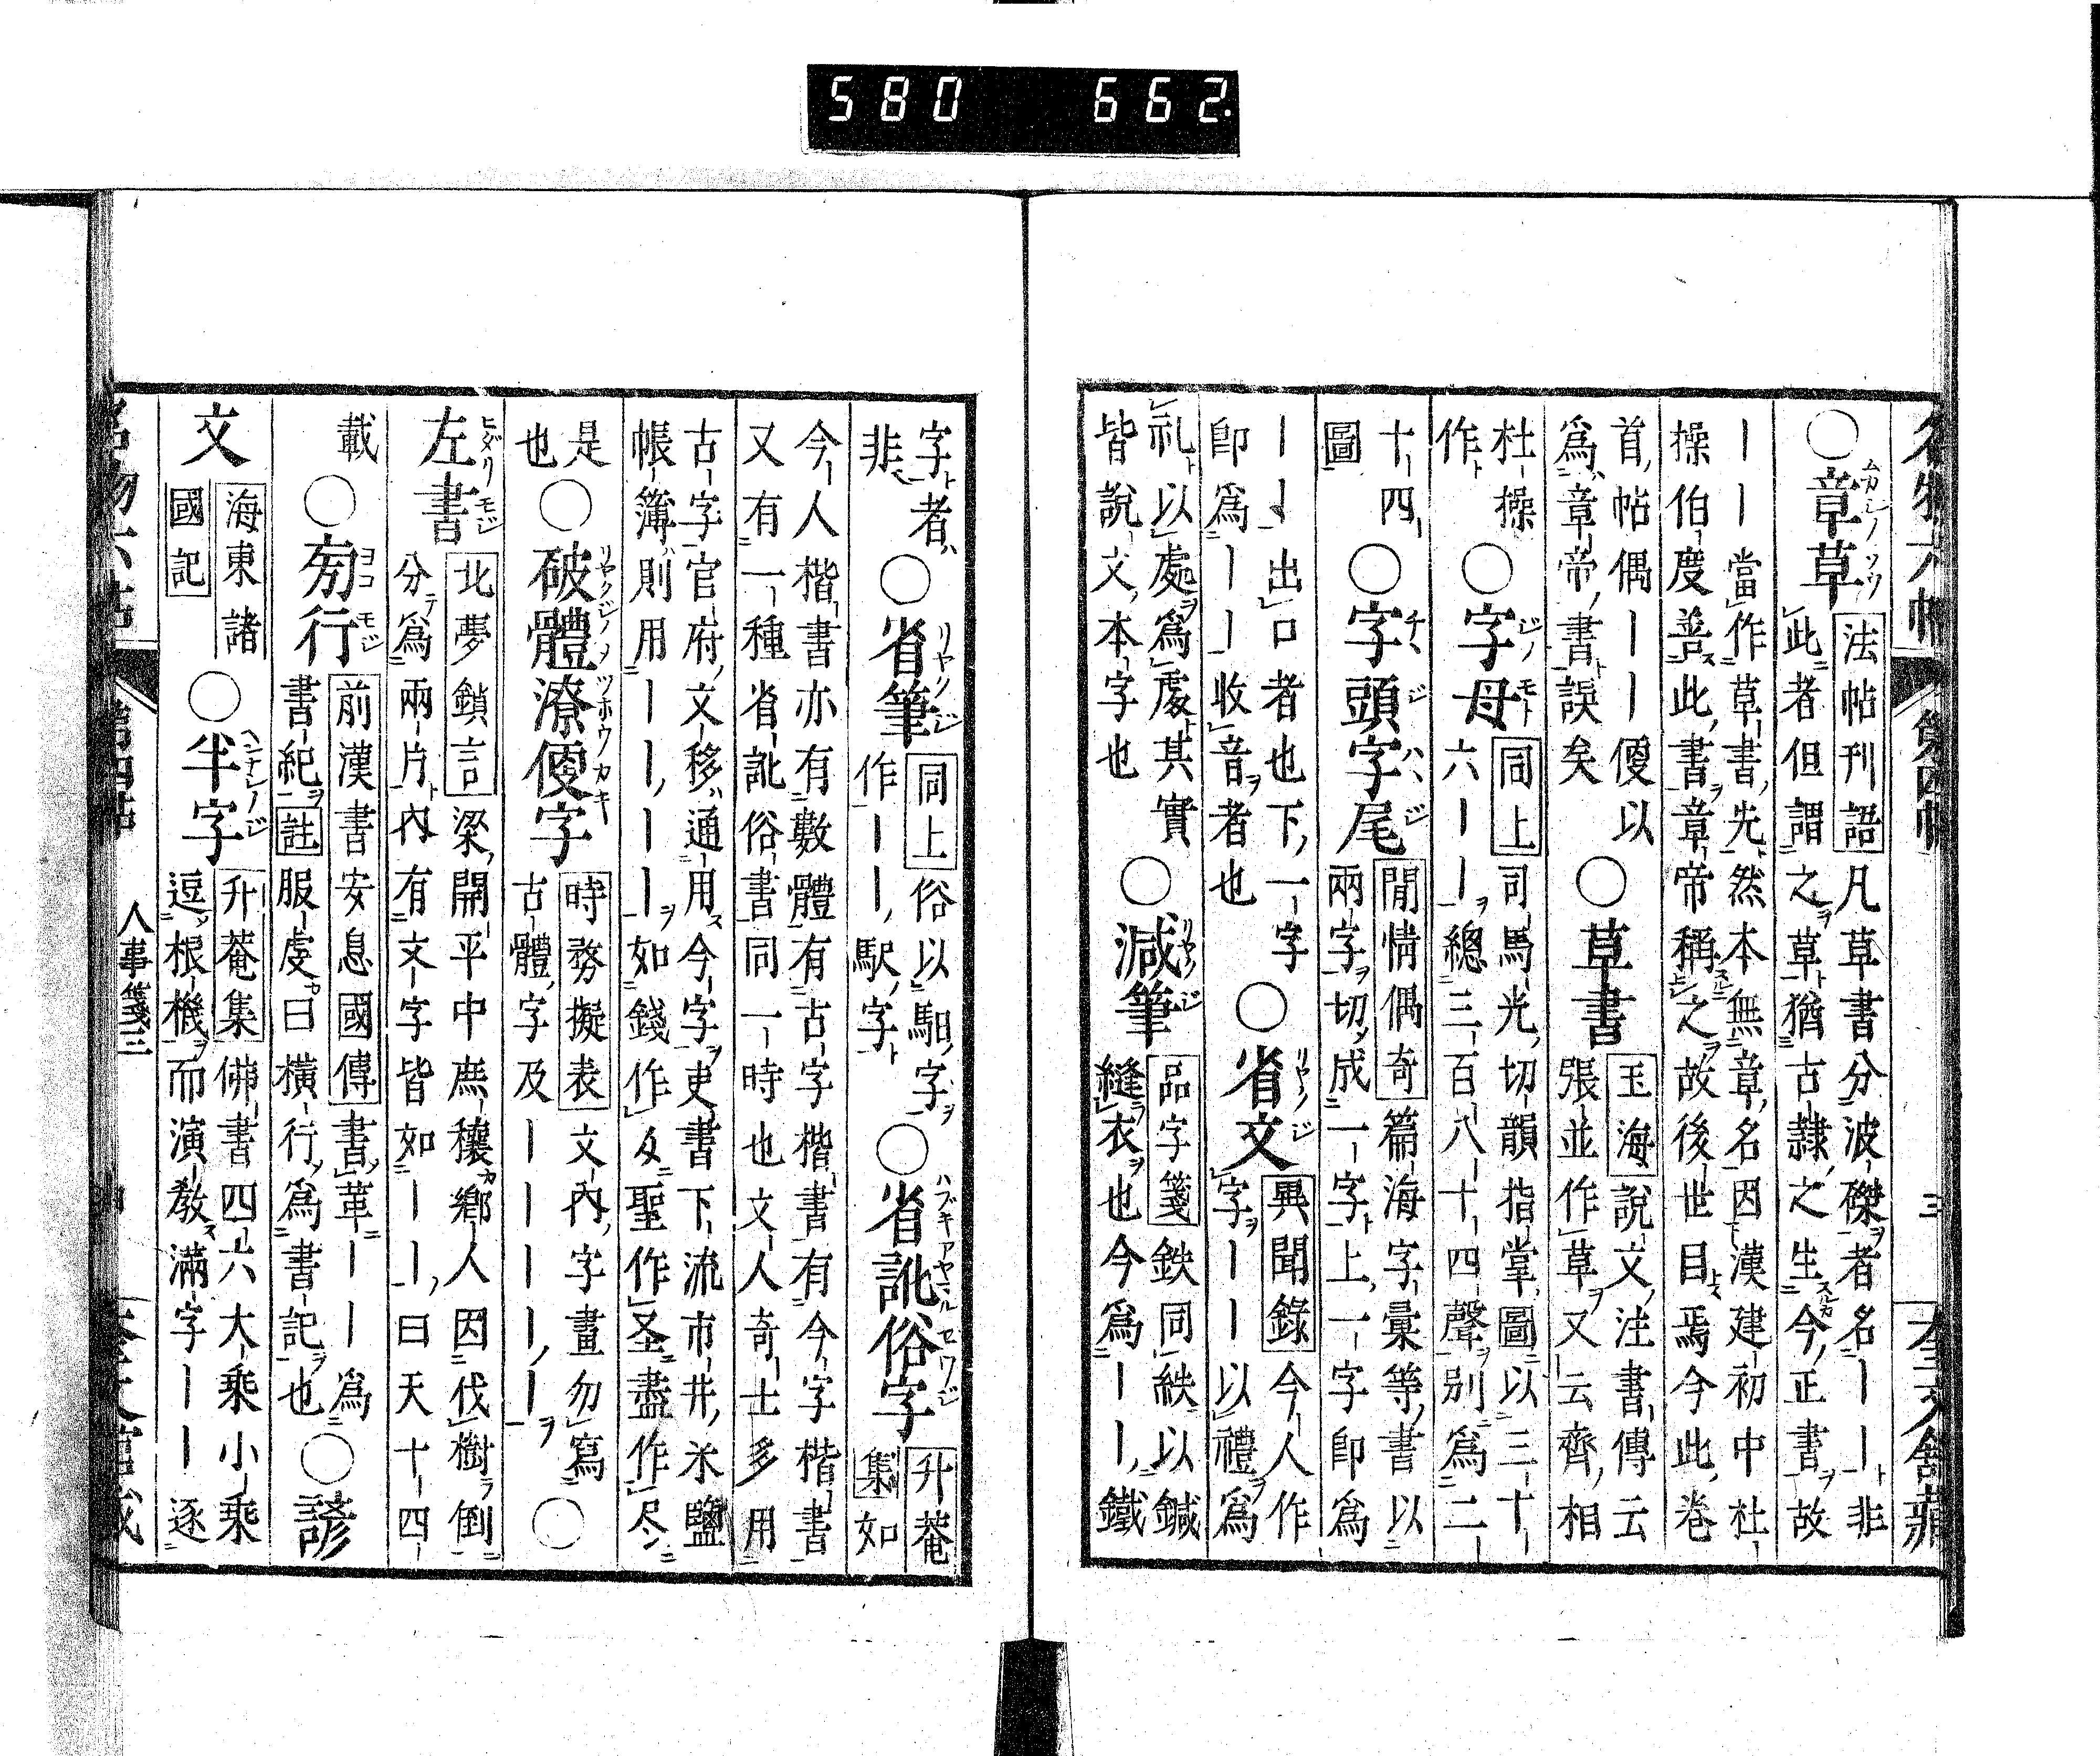 580 662.
名物六帖 第四帖 三 奎文館藏
○章草 法帖刊語 凡草書分波磔者名一一非
此者但謂之草猶古隸之生今正書故
一一當作草書先然本無章名因漢建初中杜
操伯度善此書章帝稱之故後世目焉今此卷
首帖偶一一便以
為章帝書誤矣
○草書 玉海 說文注書傳云
張並作草又云齊相
杜操
作
○字母 同上 司馬光切韻指掌圖以三十
六一一總三百八十四聲別為二
十四
圖
○字頭字尾 閒情偶奇 篇海字彙等書以
兩字切成一字上一字即為
一一出口者也下一字
即為一一收音者也
○省文 異聞錄 今人作
字一一以禮為
礼以處為処其實
皆說文本字也
○減筆 品字箋 鉄同紩以鍼
縫衣也今為一一鐵
字者
非
○省筆 同上 俗以馹字
作一一駅字
○省訛俗字 升菴集 如
今人楷書亦有數體有古字楷書有今字楷書
又有一種省訛俗書同一時也文人奇士多用
古字官府文移通用今字吏書下流市井米鹽
帳簿則用一一一一如錢作夊聖作圣盡作尽
是
也
○破體潦便字 時務擬表 文內字畫勿寫
古體字及一一一一
○
左書 北夢鎖言 梁開平中𢈘穰鄉人因伐樹倒
分為兩片內有文字皆如一一曰天十四
載
○旁行 前漢書安息國傳 書革一一為
書紀 註 服虔曰橫行為書記也
○諺
文 海東諸國記
○半字 升菴集 佛書四六大乘小乘
逗根機而演教滿字一一逐
名物六帖 第四帖 人事箋三 奎文館藏